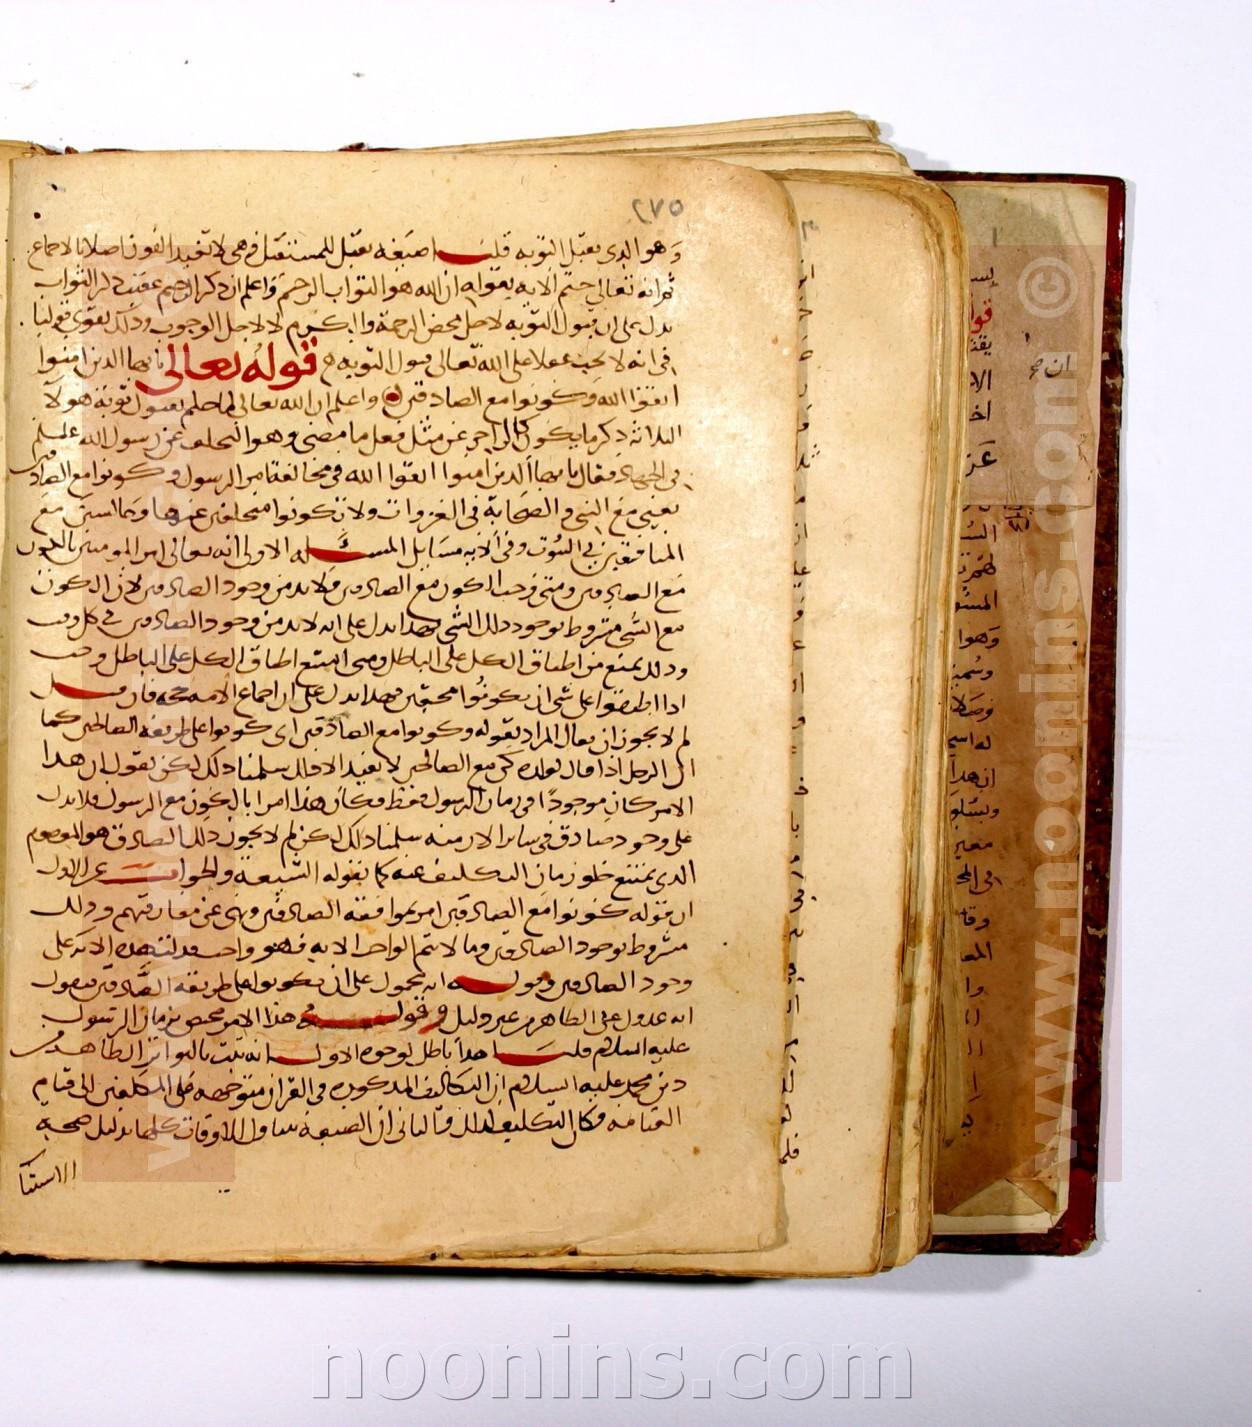 ٢٧٥
وهو الذي يقبل التوبة قلنا صيغة يقبل للمستقبل فهي لا تفيد الفور اصلا بالاجماع
ثم انه تعالى ختم الاية بقوله ان الله هو التواب الرحيم واعلم ان ذكر الرحيم عقيب ذكر التواب
يدل على ان قبول التوبة لاجل محض الرحمة والكرم لا لاجل الوجوب وذلك يقوي قولنا
في انه لا يجب عقلا على الله تعالى قبول التوبة قوله تعالى يا ايها الذين امنوا
اتقوا الله وكونوا مع الصادقين واعلم ان الله تعالى لما حكم بقبول توبة هولا
الثلاثة ذكر ما يكون كالزاجر عن مثل فعل ما مضى وهو التخلف عن رسول الله
في الجهاد فقال يا ايها الذين امنوا اتقوا الله في مخالفة امر الرسول وكونوا مع الصادقين
يعني مع النبي والصحابة في الغزوات ولا تكونوا متخلفين عنها وجالسين مع
المنافقين في البيوت وفي الاية مسايل المسئلة الاولى انه تعالى امر المومنين بالكون
مع الصادقين ومتى وجب الكون مع الصادقين فلا بد من وجود الصادقين لان الكون
مع الشي مشروط بوجود ذلك الشي فهذا يدل على انه لا بد من وجود الصادقين في كل وقت
وذلك يمنع من اطباق الكل على الباطل ومتى امتنع اطباق الكل على الباطل وجب
اذا اطبقوا على شي ان يكونوا محقين فهذا يدل على ان اجماع الامة حجة فان قيل
لم لا يجوز ان يقال المراد بقوله وكونوا مع الصادقين اي كونوا على طريقة الصالحين كما
ان الرجل اذا قال لولده كن مع الصالحين لا يفيد الا ذلك سلمنا ذلك لكن نقول ان هذا
الامر كان موجودا في زمان الرسول فقط فكان هذا امرا بالكون مع الرسول فلا يدل
على وجود صادق في ساير الازمنة سلمنا ذلك لكن لم لا يجوز ذلك الصادق هو المعصوم
الذي يمتنع خلو زمان التكليف عنه كما تقوله الشيعة والجواب عن الاول
ان قوله كونوا مع الصادقين امر بموافقة الصادقين ونهى عن مفارقتهم وذلك
مشروط بوجود الصادقين وما لا يتم الواجب الا به فهو واجب فدلت هذه الاية على
وجود الصادقين وقوله انه محمول على ان يكونوا على طريقة الصادقين فنقول
انه عدول عن الظاهر من غير دليل وقوله هذا الامر مختص بزمان الرسول
عليه السلام قلنا هذا باطل لوجوه الاول انه ثبت بالتواتر الظاهر من
دين محمد عليه السلام ان التكاليف المذكورة في القران متوجهة على المكلفين الى قيام
القيامة فكان التكليف كذلك والثاني ان الصيغة تتناول الاوقات كلها بدليل صحة
الاستثنا
www.noonins.com ©
noonins.com